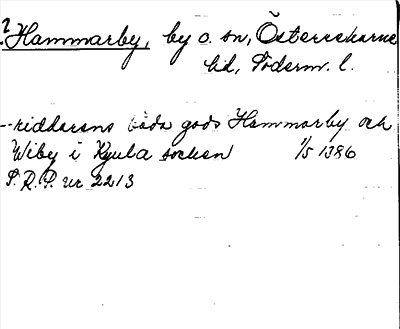 ? Hammarby, by o. sn, Österrekarne
hd, Söderm. l.
--riddarens båda gods Hammarby och
Wiby i Kjula socken 1/5 1386
S.R.P. nr 2213